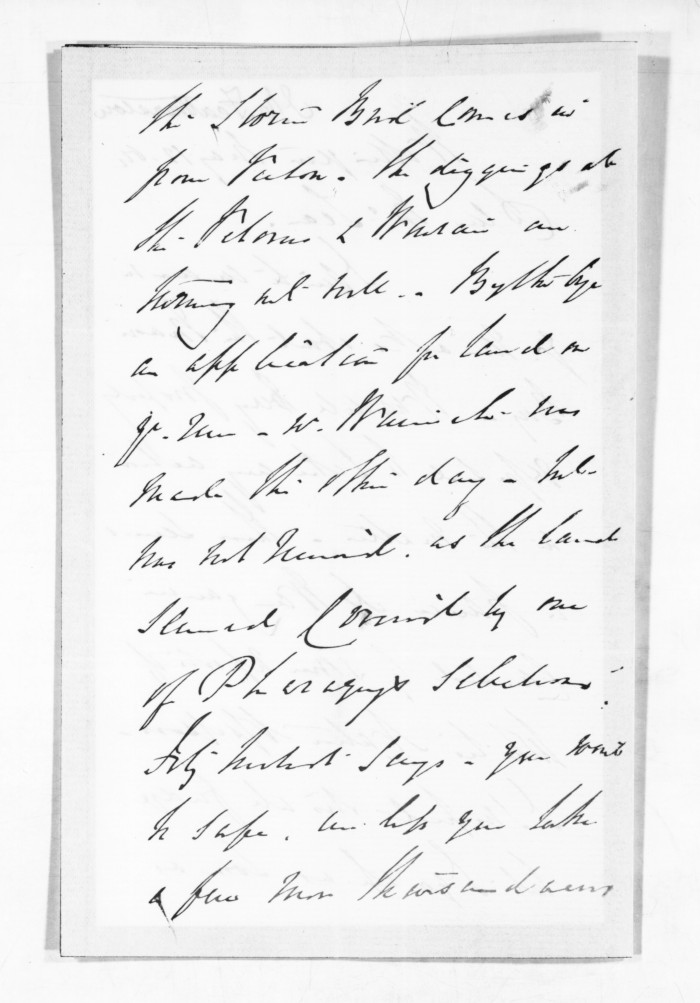 The Storm Bird comes in
from Picton - The diggings at
the Pelorus & Wairau are
turning out well - By the bye
an application for land on
yr. run - w. was
made the other day - but
was not received. as the land
seemed Covered by one
of Pharazyn's Selections.
Fitzherbert says - you wont
be safe. unless you take
a few more thousand acres